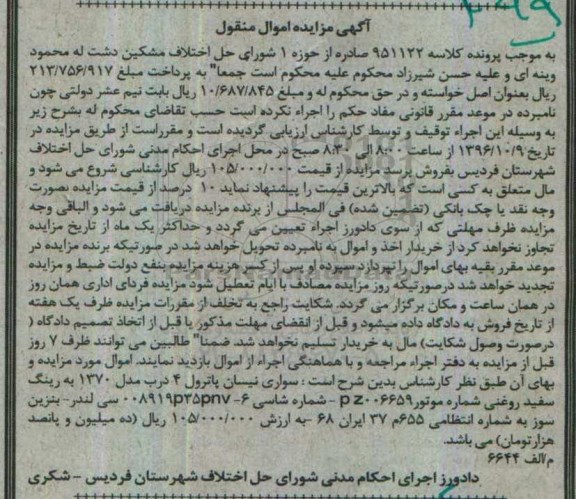 آگهی مزایده اموال منقول
به موجب پرونده کلاسه ۹۵۱۱۲۲ صادره از حوزه ۱ شورای حل اختلاف مشکین دشت له محمود
وینه ای و علیه حسن شیرزاد محکوم علیه محکوم است جمعا" به پرداخت مبلغ ۲۱۳/۷۵۶/۹۱۷
ریال بعنوان اصل خواسته و در حق محکوم له و مبلغ ۱۰/۶۸۷/۸۴۵ ریال بابت نیم عشر دولتی چون
نامبرده در موعد مقرر قانونی مفاد حکم را اجراء نکرده است حسب تقاضای محکوم له بشرح زیر
به وسیله این اجراء توقیف و توسط کارشناس ارزیابی گردیده است و مقرراست از طریق مزایده در
تاریخ ۱۳۹۶/۱۰/۹ از ساعت ۸:۰۰ الی ۸:۳۰ صبح در محل اجرای احکام مدنی شورای حل اختلاف
شهرستان فردیس بفروش برسد مزایده از قیمت ۱۰۵/۰۰۰/۰۰۰ ریال کارشناسی شروع می شود و
مال متعلق به کسی است که بالاترین قیمت را پیشنهاد نماید ۱۰ درصد از قیمت مزایده بصورت
وجه نقد یا چک بانکی (تضمین شده) فی المجلس از برنده مزایده دریافت می شود و الباقی وجه
مزایده ظرف مهلتی که از سوی دادورز اجراء تعیین می گردد و حداکثر یک ماه از تاریخ مزایده
تجاوز نخواهد کرد از خریدار اخذ و اموال به نامبرده تحویل خواهد شد در صورتیکه برنده مزایده در
موعد مقرر بقیه بهای اموال را نپردازد سپرده او پس از کسر هزینه مزایده بنفع دولت ضبط و مزایده
تجدید خواهد شد درصورتیکه روز مزایده مصادف با ایام تعطیل شود مزایده فردای اداری همان روز
در همان ساعت و مکان برگزار می گردد. شکایت راجع به تخلف از مقررات مزایده ظرف یک هفته
از تاریخ فروش به دادگاه داده میشود و قبل از انقضای مهلت مذکور یا قبل از اتخاذ تصمیم دادگاه (
درصورت وصول شکایت) مال به خریدار تسلیم نخواهد شد. ضمنا" طالبین می توانند ظرف ۷ روز
قبل از مزایده به دفتر اجراء مراجعه و با هماهنگی اجراء از اموال بازدید نمایند. اموال مورد مزایده و
بهای آن طبق نظر کارشناس بدین شرح است : سواری نیسان پاترول ۴ درب مدل ۱۳۷۰ به رینگ
سفید روغنی شماره موتور pz۰۰۶۶۵۹ - شماره شاسی ۰۰۸۹۱۹p۳۵pnv -۶ سی لندر- بنزین
سوز به شماره انتظامی ۶۵۵م ۳۷ ایران ۶۸ -به ارزش ۱۰۵/۰۰۰/۰۰۰ ریال (ده میلیون و پانصد
هزارتومان) می باشد.
م/الف ۶۶۴۴
دادورز اجرای احکام مدنی شورای حل اختلاف شهرستان فردیس - شکری